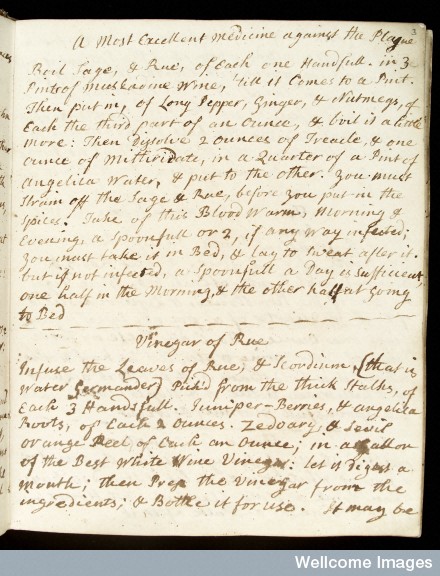 3
A Most Excellent Medicine against the Plague
Boil Sage, & Rue, of Each one Handfull. in 3
Pints of Muskadine Wine, 'till it Comes to a Pint.
Then put in, of Long Pepper, Ginger, & Nutmegs, of
Each the third part of an Ounce, & boil it a little
more: Then Dysolve 2 ounces of Treacle, & one
ounce of Mithridate, in a Quarter of a Pint of
Angelica Water, & put to the other. You must
Strain off the Sage & Rue, before you put in the
Spices. Take of this Blood Warm, Morning &
Evening, a Spoonfull or 2, if any way infected;
you must take it in Bed, & lay to sweat after it.
but if not infected, a Spoonfull a Day is Sufficient,
one half in the Morning, & the other half at going
to Bed
Vinegar of Rue
Infuse the Leaves of Rue, & Scordium, (that is
Water Germander) Pick'd from the thick Stalks, of
Each 3 Handsfull. Juniper-Berries, & angelica
Roots, of Each 2 Ounces. Zedoary, & Sevil
orange Peel of Each an Ounce; in a Gallon
of the Best White Wine Vinegar: let it Digest a
Month; then Press the Vinegar from the
ingredients; & Bottle it for use. It may be
Wellcome Images